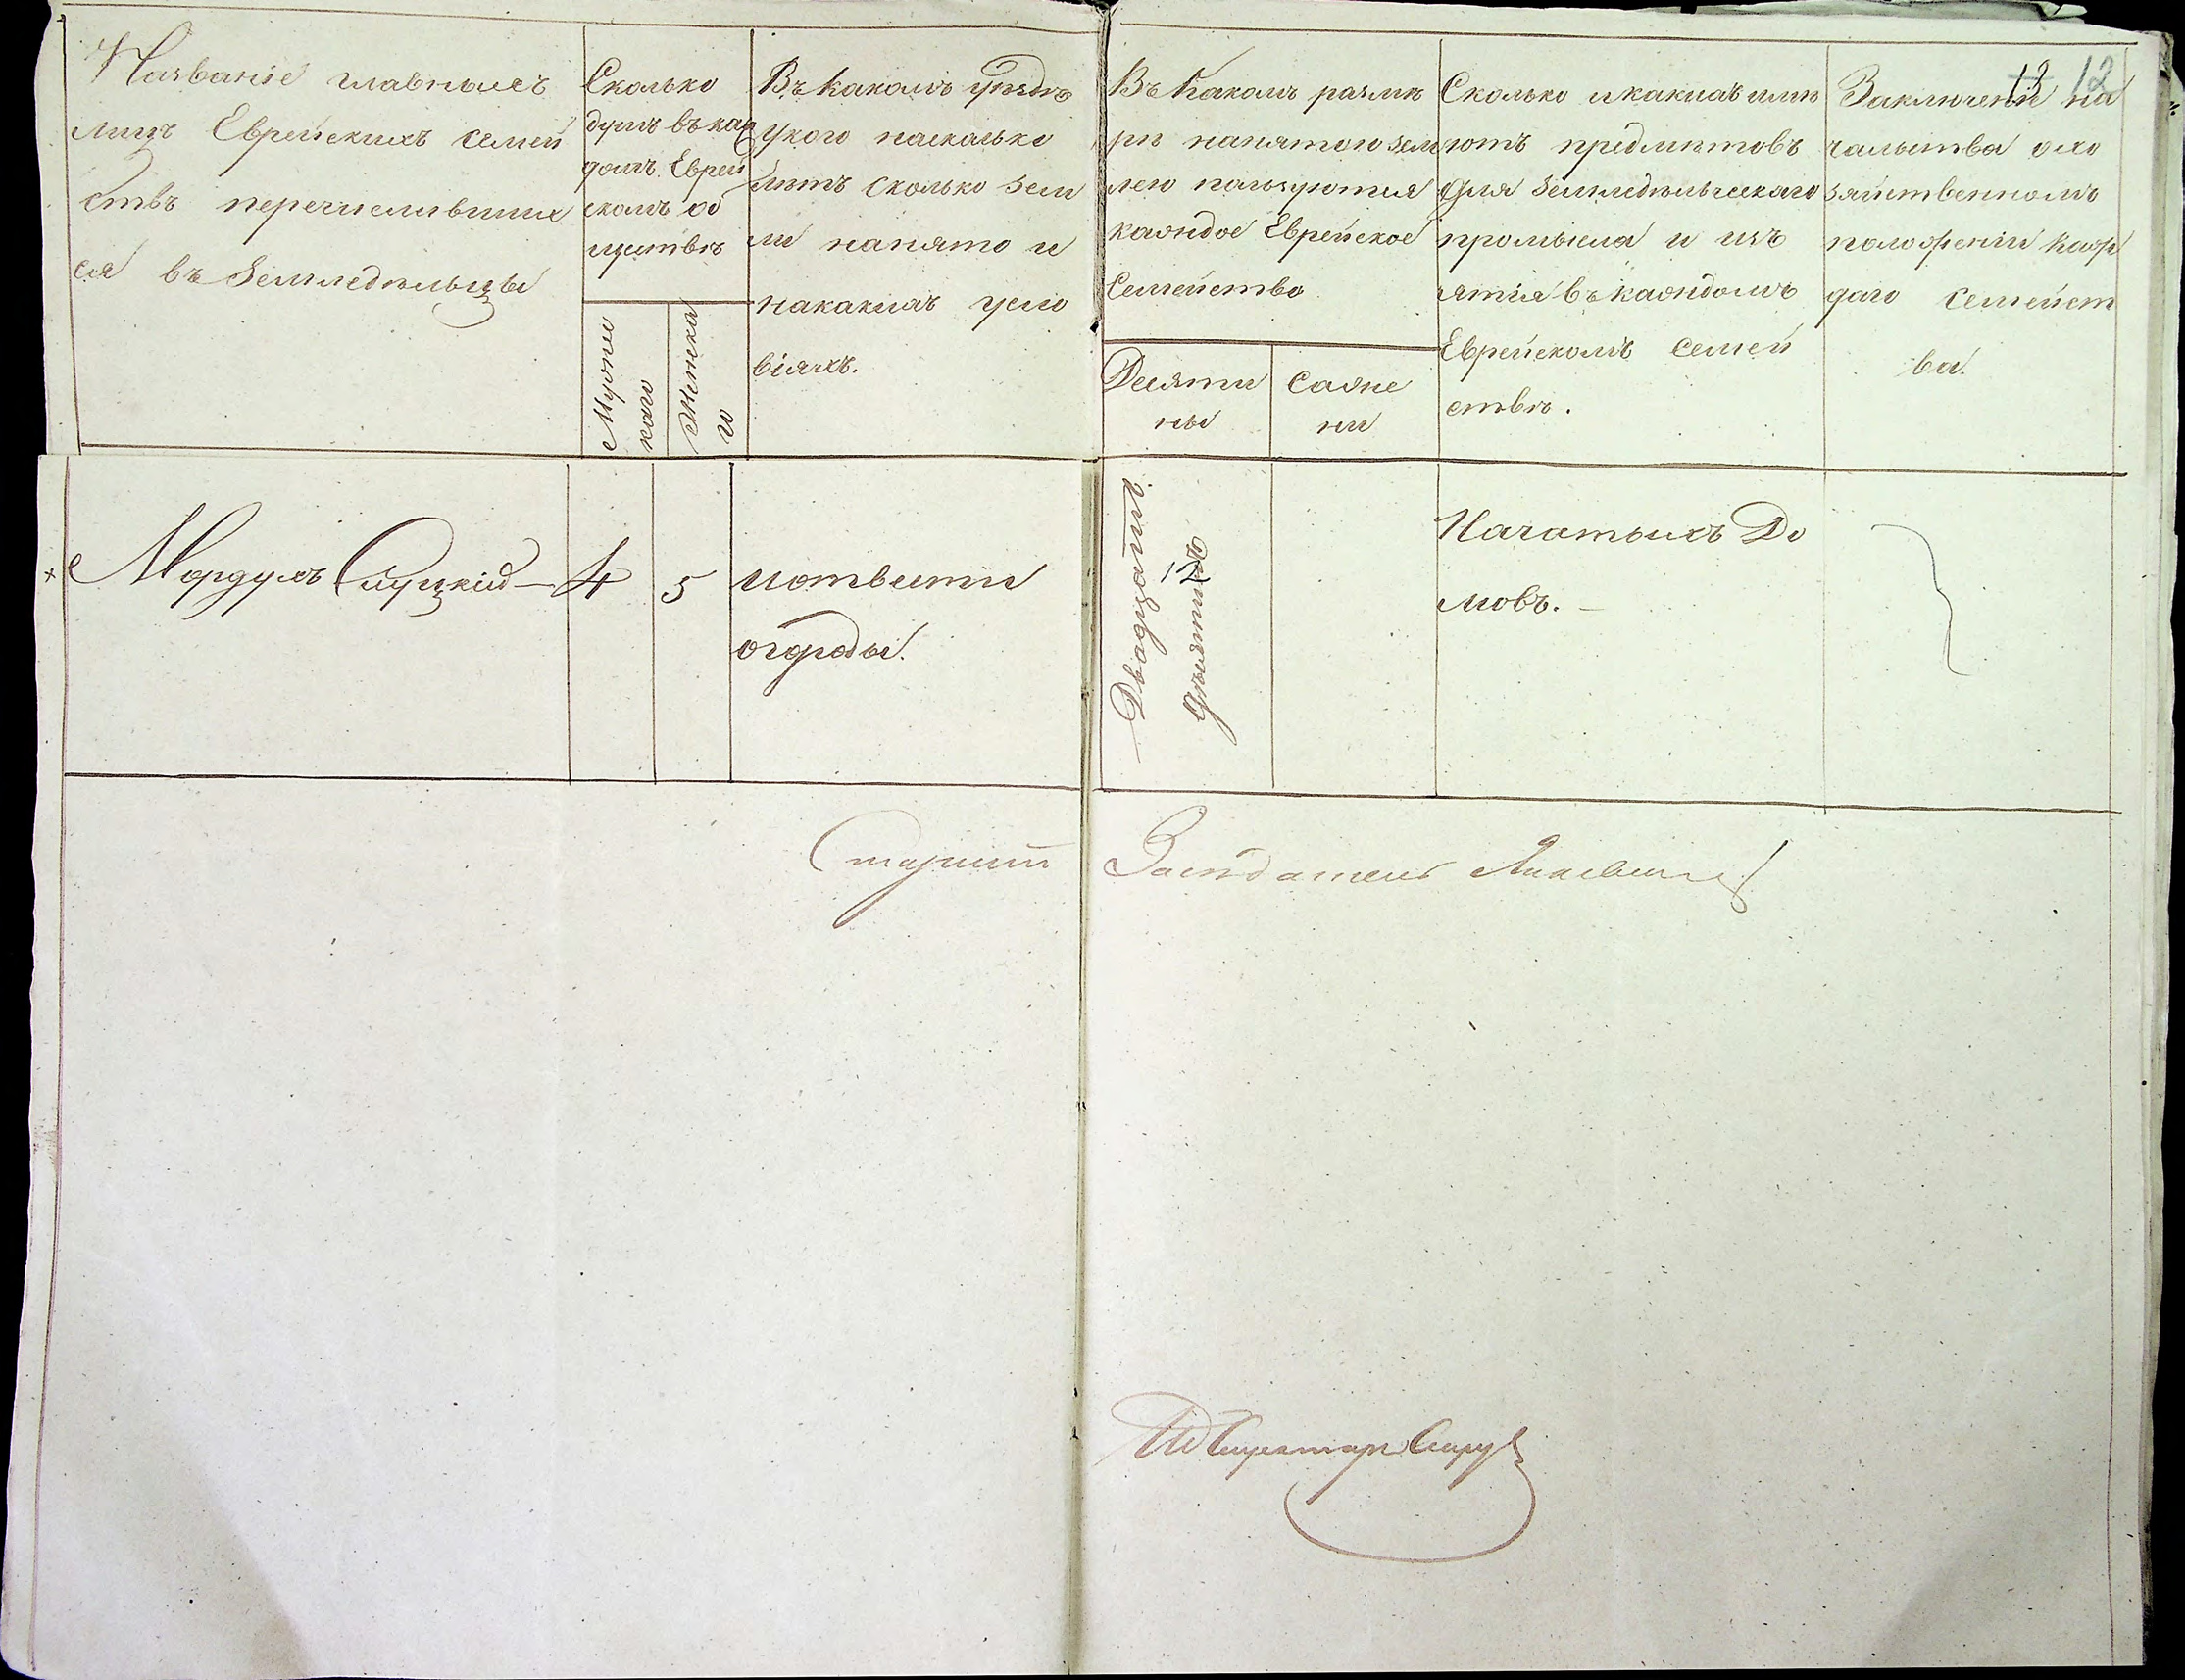 13 12
Названіе главныхъ
лицъ Еврейскихъ семей
ствъ перечисливших
ся въ Земледѣльцы
Сколько
душъ въ каж
домъ Еврей
скомъ об
ществѣ
Мужес
каго
Женска
го
Въ какомъ уѣздѣ
у кого насколько
лѣтъ сколько зем
ли нанято и
на какихъ усло
віяхъ.
Въ какомъ размѣ
рѣ нанятою зем
лею пользуется
каждое Еврейское
Семейство
Десяти
ны
Саже
ни
Сколько и какихъ имѣ
ютъ предметовъ
для земледѣльческаго
промысла и изъ
ятія въ каждомъ
Еврейскомъ семей
ствѣ.
Заключеніе на
чальства о хо
зяйственномъ
положеніи каж
даго семейст
ва.
Мордухъ Слуцкій 4 5
огороды.
Двадцать
12
Начатыхъ До
мовъ.
Старшій Засѣдатель